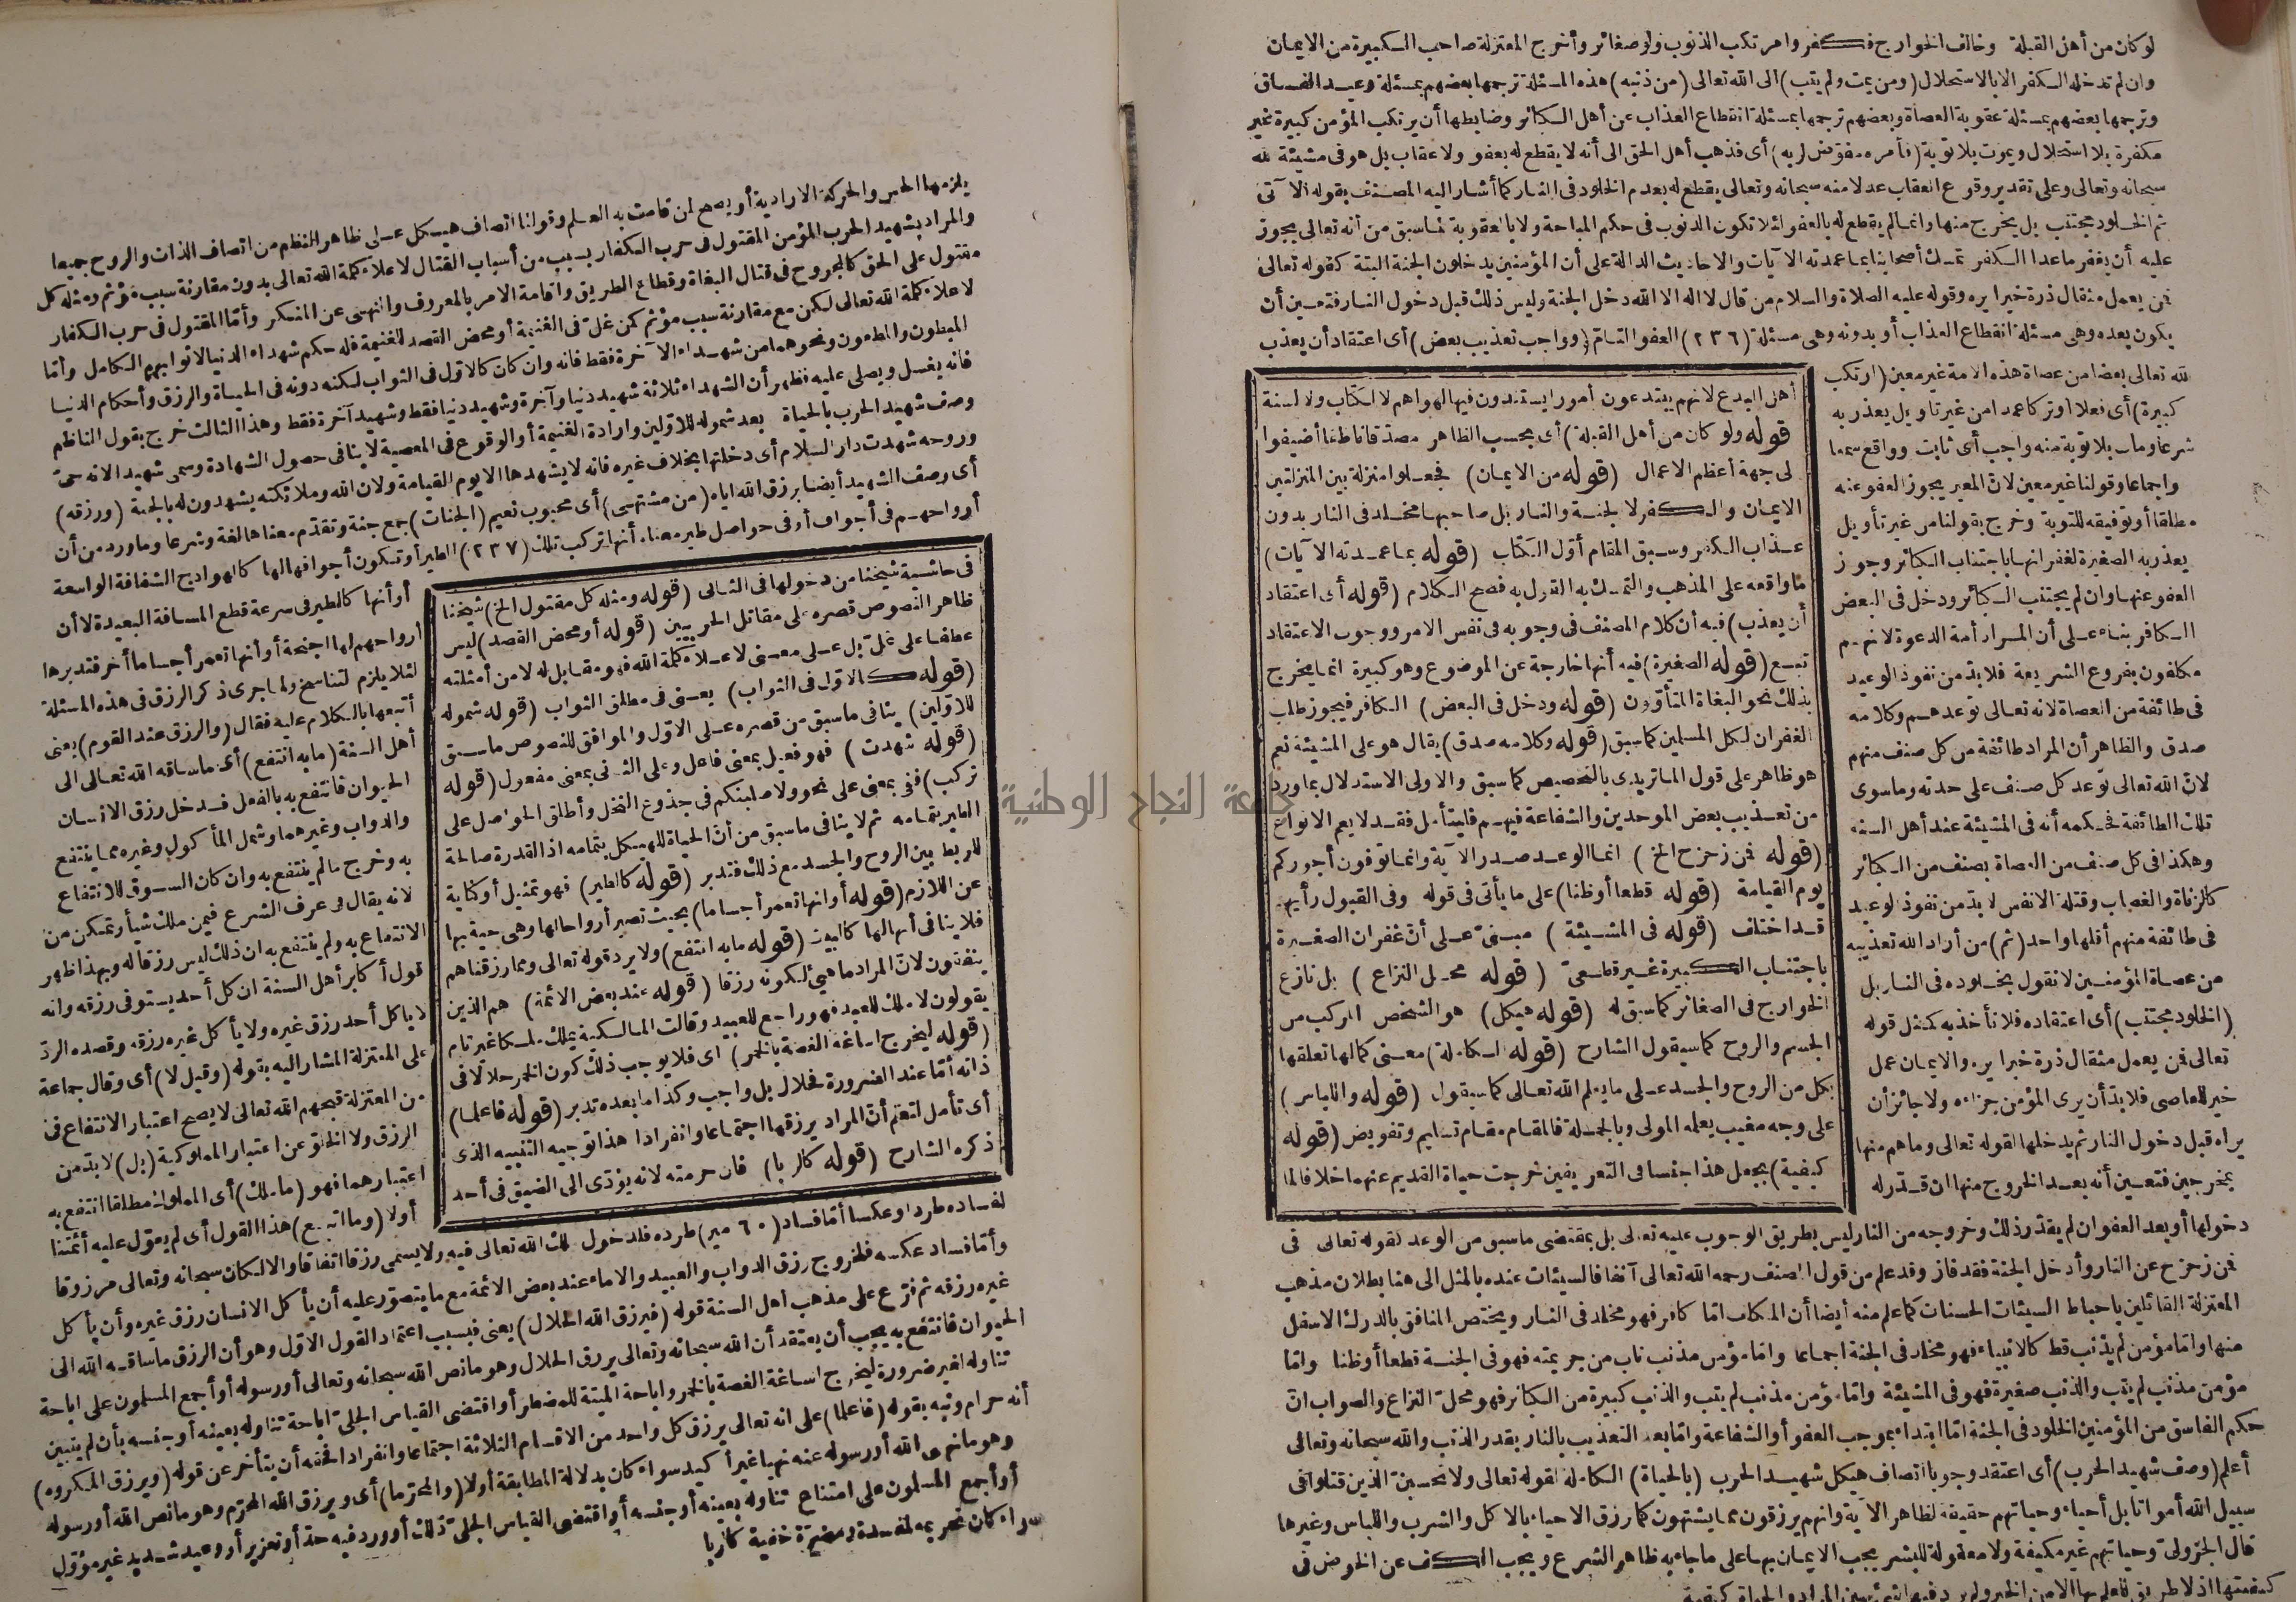 لو كان من أهل القبلة وخالف الخوارج فكفروا مرتكب الذنوب ولو صغائر وأخرج المعتزلة صاحب الكبيرة من الايمان
وان لم تدخله الكفر الا بالاستحلال (ومن يمت ولم يتب) الى الله تعالى (من ذنبه) هذه المسئلة ترجمها بعضهم بمسئلة وعيد الفساق
وترجمها بعضهم بمسئلة عقوبة العصاة وبعضهم ترجمها بمسئلة انقطاع العذاب عن أهل الكبائر وضابطها أن يرتكب المؤمن كبيرة غير
مكفرة بلا استحلال ويموت بلا توبة (فأمره مفوض لربه) أى فذهب أهل الحق الى أنه لا يقطع له بعفو ولا عقاب بل هو فى مشيئة الله
سبحانه وتعالى وعلى تقدير وقوع العقاب عدلا منه سبحانه وتعالى يقطع له بعدم الخلود فى النار كما أشار اليه المصنف بقوله الآتى
ثم الخلود مجتنب بل يخرج منها وانما لم يقطع له بالعفو لئلا تكون الذنوب فى حكم المباحة ولا بالعقوبة لما سبق من أنه تعالى يجوز
عليه أن يغفر ما عدا الكفر تمسك أصحابنا بما عمدته الآيات والاحاديث الدالة على أن المؤمنين يدخلون الجنة البتة كقوله تعالى
فمن يعمل مثقال ذرة خيرا يره وقوله عليه الصلاة والسلام من قال لا اله الا الله دخل الجنة وليس ذلك قبل دخول النار فتعين أن
يكون بعده وهى مسئلة انقطاع العذاب أو بدونه وهى مسئلة (٢٣٦) العفو التام (وواجب تعذيب بعض) أى اعتقاد أن يعذب
لله تعالى بعضا من عصاة هذه الامة غير معين (ارتكب
كبيرة) أى فعلا أو تركا عمدا من غير تاويل يعذر به
شرعا ومات بلا توبة منه واجب أى ثابت وواقع سمعا
واجماعا وقولنا غير معين لان المعين يجوز العفو عنه
مطلقا أو توفيقه للتوبة وخرج بقولنا من غير تأويل
يعذر به الصغيرة لغفرانها باجتناب الكبائر وجواز
العفو عنها وان لم يجتنب الكبائر ودخل فى البعض
الكافر بناء على أن المراد أمة الدعوة لانهم
مكلفون بفروع الشريعة فلا بد من نفوذ الوعيد
فى طائفة من العصاة لانه تعالى توعدهم وكلامه
صدق والظاهر أن المراد طائفة من كل صنف منهم
لان الله تعالى توعد كل صنف على حدته وما سوى
تلك الطائفة فحكمه أنه فى المشيئة عند أهل السنة
وهكذا فى كل صنف من العصاة بصنف من الكبائر
كالزناة والغصاب وقتلة الانفس لا بد من نفوذ الوعيد
فى طائفة منهم أقلها واحد (ثم) من أراد الله تعذيبه
من عصاة المؤمنين لا نقول بخلوده فى النار بل
(الخلود مجتنب) أى اعتقاده فلا نأخذ به لمثل قوله
تعالى فمن يعمل مثقال ذرة خيرا يره والايمان عمل
خير للعاصى فلا بد أن يرى المؤمن جزاءه ولا جائز أن
يراه قبل دخول النار ثم يدخلها لقوله تعالى وما هم منها
بمخرجين فتعين أنه بعد الخروج منها ان قدر له
أهل البدع لانهم يبتدعون أمورا يستندون فيها لهواهم لا لكتاب ولا لسنة
قوله ولو كان من أهل القبلة) أى بحسب الظاهر مصدقا ناطقا أضيفوا
لى جهة أعظم الاعمال (قوله من الايمان) فجعلوا منزلة بين المنزلتين
الايمان والكفر لا بجنة والنار بل صاحبها مخلد فى النار بدون
عذاب الكفر وسبق المقام أول الكتاب (قوله بما عمدته الآيات)
ما واقعة على المذهب والتمسك به القول به فصح الكلام (قوله أى اعتقاد
أن يعذب) فيه أن كلام المصنف فى وجوبه فى نفس الامر ووجوب الاعتقاد
تبع (قوله الصغيرة) فيه أنها خارجة عن الموضوع وهو كبيرة انما يخرج
بذلك نحو البغاة المتأولون (قوله ودخل فى البعض) الكافر فيجوز طلب
الغفران لكل المسلمين كما سبق (قوله وكلامه صدق) يقال هو على المشيئة نعم
هو ظاهر على قول الماتريدى بالتخصيص كما سبق والاولى الاستدلال بما ورد
من تعذيب بعض الموحدين والشفاعة فيهم فليتأمل فقد لا يعم الانواع
(قوله فمن زحزح الخ) انما الوعد صدر الآية وانما توفون أجوركم
يوم القيامة (قوله قطعا أو ظنا) على ما يأتى فى قوله وفى القبول رأيهم
قد اختلف (قوله فى المشيئة) مبنى على أن غفران الصغيرة
باجتناب الكبيرة غير قطعى (قوله محل النزاع) بل نازع
الخوارج فى الصغائر كما سبق له (قوله هيكل) هو الشخص المركب من
الجسم والروح كما سيقول الشارح (قوله الكاملة) معنى كمالها تعلقها
بكل من الروح والجسد على ما يعلم الله تعالى كما سيقول (قوله واللباس)
على وجه مغيب يعلمه المولى وبالجملة فالمقام مقام تسليم وتفويض (قوله
كيفية) يجعل هذا جنسا فى التعريفين خرجت حياة القديم عنهما خلافا لما
دخولها أو بعد العفو ان لم يقدر ذلك وخروجه من النار ليس بطريق الوجوب عليه تعالى بل بمقتضى ما سبق من الوعد لقوله تعالى فى
فمن زحزح عن النار وأدخل الجنة فقد فاز وقد علم من قول المصنف رحمه الله تعالى آنفا فالسيئات عنده بالمثل الى هنا بطلان مذهب
المعتزلة القائلين باحباط السيئات الحسنات كما علم منه أيضا أن المكلف اما كافر فهو مخلد فى النار ويختص المنافق بالدرك الاسفل
منها واما مؤمن لم يذنب قط كالانبياء فهو مخلد فى الجنة اجماعا واما مؤمن مذنب تاب من جريمته فهو فى الجنة قطعا أو ظنا واما
مؤمن مذنب لم يتب والذنب صغيرة فهو فى المشيئة واما مؤمن مذنب لم يتب والذنب كبيرة من الكبائر فهو محل النزاع والصواب ان
حكم الفاسق من المؤمنين الخلود فى الجنة اما ابتداء بموجب العفو أو الشفاعة واما بعد التعذيب بالنار بقدر الذنب والله سبحانه وتعالى
أعلم (وصف شهيد الحرب) أى اعتقد وجوبا اتصاف هيكل شهيد الحرب (بالحياة) الكاملة لقوله تعالى ولا تحسبن الذين قتلوا فى
سبيل الله أمواتا بل أحياء وحياتهم حقيقة لظاهر الآية وانهم يرزقون مما يشتهون كما رزق الاحياء بالاكل والشرب واللباس وغيرها
قال الجزولى وحياتهم غير مكيفة ولا معقولة للبشر يجب الايمان بها على ما جاء به ظاهر الشرع ويجب الكف عن الخوض فى
كيفيتها اذ لا طريق للعلم بها الا من الخبر ولم يرد
يلزمها الحس والحركة الارادية أو يصح لمن قامت به العلم وقولنا اتصاف هيكل على ظاهر النظم من اتصاف الذات والروح جميعا
والمراد بشهيد الحرب المؤمن المقتول فى حرب الكفار بسبب من أسباب القتال لاعلاء كلمة الله تعالى بدون مقارنة سبب مؤثم ومثله كل
مقتول على الحق كالمجروح فى قتال البغاة وقطاع الطريق واقامة الامر بالمعروف والنهى عن المنكر وأما المقتول فى حرب الكفار
لاعلاء كلمة الله تعالى لكن مع مقارنة سبب مؤثم كمن غل فى الغنيمة أو محض القصد للغنيمة فله حكم شهداء الدنيا لا ثوابهم الكامل وأما
المبطون والمطعون ونحوهما من شهداء الآخرة فقط فانه وان كان كالاول فى الثواب لكنه دونه فى الحياة والرزق وأحكام الدنيا
فانه يغسل ويصلى عليه فظهر أن الشهداء ثلاثة شهيد دنيا وآخرة وشهيد دنيا فقط وشهيد آخرة فقط وهذا الثالث خرج بقول الناظم
وصف شهيد الحرب بالحياة بعد شموله للاولين وارادة الغنيمة أو الوقوع فى المعصية لا ينافى حصول الشهادة وسمى شهيدا لانه حى
وروحه شهدت دار السلام أى دخلتها بخلاف غيره فانه لا يشهدها الا يوم القيامة ولان الله وملائكته يشهدون له بالجنة (ورزقه)
أى وصف الشهيد أيضا برزق الله اياه (من مشتهى) أى محبوب نعيم (الجنات) جمع جنة وتقدم معناها لغة وشرعا وما ورد من أن
أرواحهم فى أجواف أو فى حواصل طير معناه أنها تركب تلك (٢٣٧) الطير أو تكون أجوافها لها كالهوادج الشفافة الواسعة
أو أنها كالطير فى سرعة قطع المسافة البعيدة لا أن
أرواحهم لها أجنحة أو أنها تعمر أجساما أخر فتدبرها
لئلا يلزم التناسخ ولما جرى ذكر الرزق فى هذه المسئلة
أتبعها بالكلام عليه فقال (والرزق عند القوم) يعنى
أهل السنة (ما به انتفع) أى ما ساقه الله تعالى الى
الحيوان فانتفع به بالفعل فدخل رزق الانسان
والدواب وغيرهما وشمل المأكول وغيره مما ينتفع
به وخرج ما لم ينتفع به وان كان السوق للانتفاع
لانه يقال فى عرف الشرع فيمن ملك شيأ وتمكن من
الانتفاع به ولم ينتفع به ان ذلك ليس رزقا له وبهذا ظهر
قول أكابر أهل السنة ان كل أحد يستوفى رزقه وانه
لا يأكل أحد رزق غيره ولا يأكل غيره رزقه وقصده الرد
على المعتزلة المشار اليه بقوله (وقيل لا) أى وقال جماعة
من المعتزلة قبحهم الله تعالى لا يصح اعتبار الانتفاع فى
الرزق ولا الخلو عن اعتبار المملوكية (بل) لا بد من
اعتبارهما فهو (ما ملك) أى المملوك مطلقا انتفع به
أو لا (وما اتبع) هذا القول أى لم يعول عليه أئمتنا
فى حاشية شيخنا من دخولها فى الثانى (قوله ومثله كل مقتول الخ) شيخنا
ظاهر النصوص قصره على مقاتل الحربيين (قوله أو محض القصد) ليس
عطفا على غل بل على معنى لاعلاء كلمة الله فهو مقابل له لا من أمثلته
(قوله كالاول فى الثواب) يعنى فى مطلق الثواب (قوله شموله
للاولين) ينافى ما سبق من قصره على الاول والموافق للنصوص ما سبق
(قوله شهدت) فهو فعيل بمعنى فاعل وعلى الثانى بمعنى مفعول (قوله
تركب) ففى بمعنى على نحو ولاصلبنكم فى جذوع النخل وأطلق الحواصل على
الطير بتمامه ثم لا ينافى ما سبق من أن الحياة للهيكل بتمامه اذ القدرة صالحة
للربط بين الروح والجسد مع ذلك فتدبر (قوله كالطير) فهو تمثيل أو كناية
عن اللازم (قوله أو أنها تعمر أجساما) بحيث تصير أرواحا لها وهى حية بها
فلا ينافى أنها لها كالبيت (قوله ما به انتفع) ولا يرد قوله تعالى ومما رزقناهم
ينفقون لان المراد ما هيئ لكونه رزقا (قوله عند بعض الائمة) هم الذين
يقولون لا ملك للعبد فهو راجع للعبيد وقالت المالكية يملك ملكا غير تام
(قوله ليخرج اساغة الغصة بالخمر) اى فلا يوجب ذلك كون الخمر حلالا فى
ذاته أما عند الضرورة فحلال بل واجب وكذا ما بعده تدبر (قوله فاعلما)
أى تأمل لتعلم أن المراد يرزقها اجتماعا وانفرادا هذا توجيه التنبيه الذى
ذكره الشارح (قوله كالربا) فان حرمته لانه يؤدى الى الضيق فى أحد
لفساده طردا وعكسا أما فساد (٦٠ مير) طرده فلدخول ملك الله تعالى فيه ولا يسمى رزقا اتفاقا والا لكان سبحانه وتعالى مرزوقا
وأما فساد عكسه فلخروج رزق الدواب والعبيد والاماء عند بعض الائمة مع ما يتصور عليه أن يأكل الانسان رزق غيره وأن يأكل
غيره رزقه ثم فرع على مذهب أهل السنة قوله (فيرزق الله الحلال) يعنى فبسبب اعتماد القول الاول وهو أن الرزق ما ساقه الله الى
الحيوان فانتفع به يجب أن يعتقد أن الله سبحانه وتعالى يرزق الحلال وهو ما نص الله سبحانه وتعالى أو رسوله أو أجمع المسلمون على اباحة
تناوله لغير ضرورة ليخرج اساغة الغصة بالخمر واباحة الميتة للمضطر أو اقتضى القياس الجلى اباحة تناوله بعينه أو جنسه بأن لم يتبين
أنه حرام ونبه بقوله (فاعلما) على انه تعالى يرزق كل واحد من الاقسام الثلاثة اجتماعا وانفرادا فحقه أن يتأخر عن قوله (ويرزق المكروه)
وهو ما نهى الله أو رسوله عنه نهيا غير أكيد سواء كان بدلالة المطابقة أو لا (والمحرما) أى ويرزق الله المحرم وهو ما نص الله أو رسوله
أو أجمع المسلمون على امتناع تناوله بعينه أو جنسه أو اقتضى القياس الجلى ذلك أو ورد فيه حد أو تعزير أو وعيد شديد غير مؤول
سواء كان تحريمه لمفسدة ومضرة خفية كالربا
جامعة النجاح الوطنية